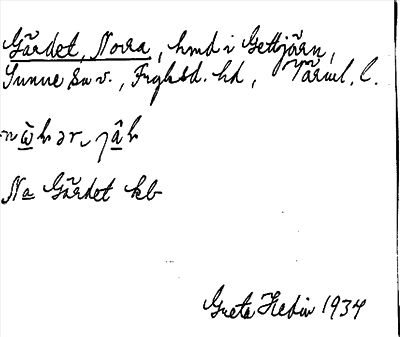 Gärdet, Norra, hmd i Gettjärn,
Sunne sn v., Fryksd. hd, Värml. l.
Na Gärdet kb
Greta Hedin 1934